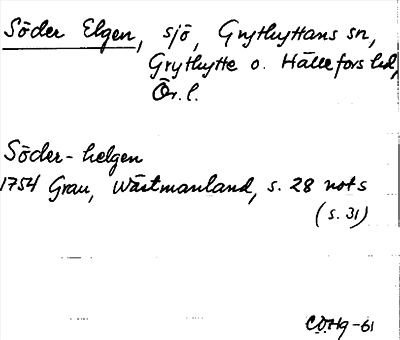 Söder Elgen, sjö, Grythyttans sn,
Grythytte o. Hällefors hd,
Ör. l.
Söder-helgen
1754 Grau, Wästmanland, s. 28 not s
(s. 31)
-61